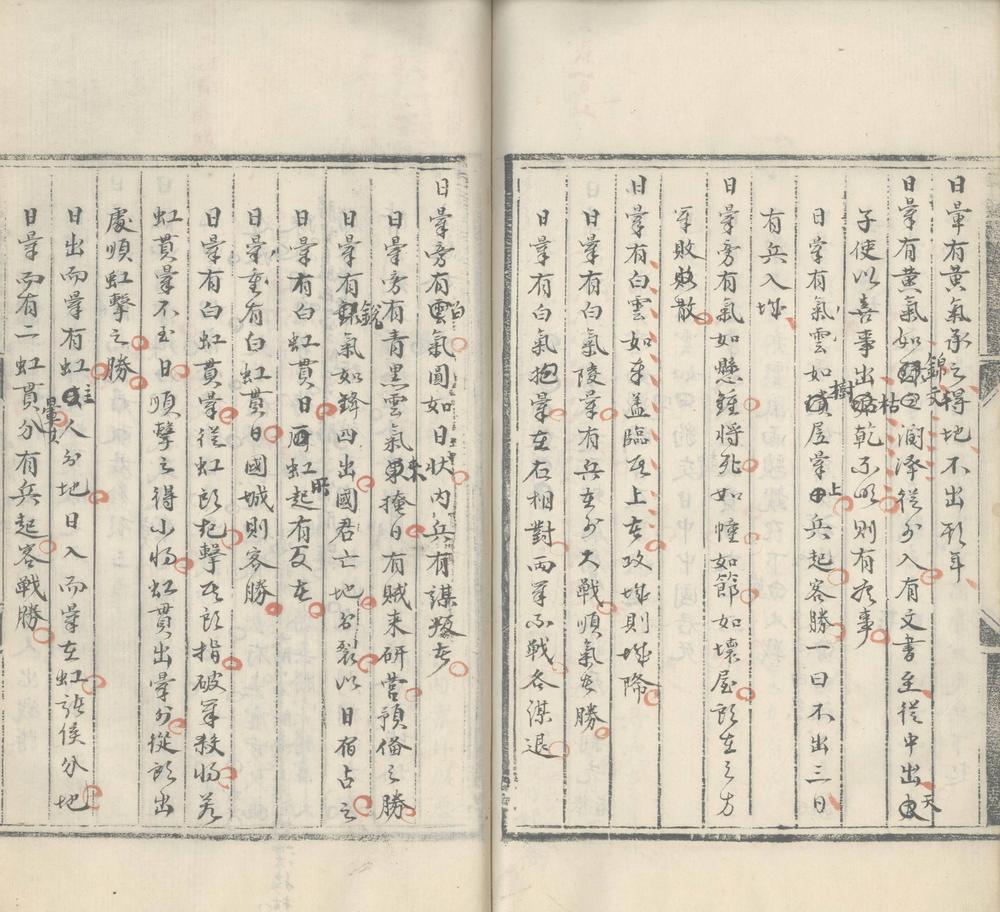 日暈有黃氣承之得地不出期年
日暈有黃氣如錦文潤澤從外入有文書至從中出天
子使以喜事出枯乾不明則有疾事
日暈有氣雲如樹屋暈上兵起客勝一曰不出三日
有兵入城
日暈旁有氣如懸鍾將死如幢如節如壞屋所在之方
軍敗散
日暈有白雲如車蓋臨其上在攻城則城降
日暈有白氣陵暈有兵在外大戰順氣者勝
日暈有白氣抱暈左右相對兩軍不戰各謀退
日暈旁有白氣圓如日狀內兵有謀叛者
日暈旁有青黑雲氣來掩日有賊來斫營預備之勝
日暈有銳氣如鋒四出國君亡地分裂以日宿占之
日暈有白虹貫日所虹起有反者
日暈有白虹貫日國城則客勝
日暈有白虹貫暈從虹所起擊其所指破軍殺將若
虹貫暈不至日順擊之得小將虹貫出暈外從所出
處順虹擊之勝
日出而暈有虹主人分地日入而暈在虹諸侯分地
日暈而有二虹貫分有兵起客戰勝